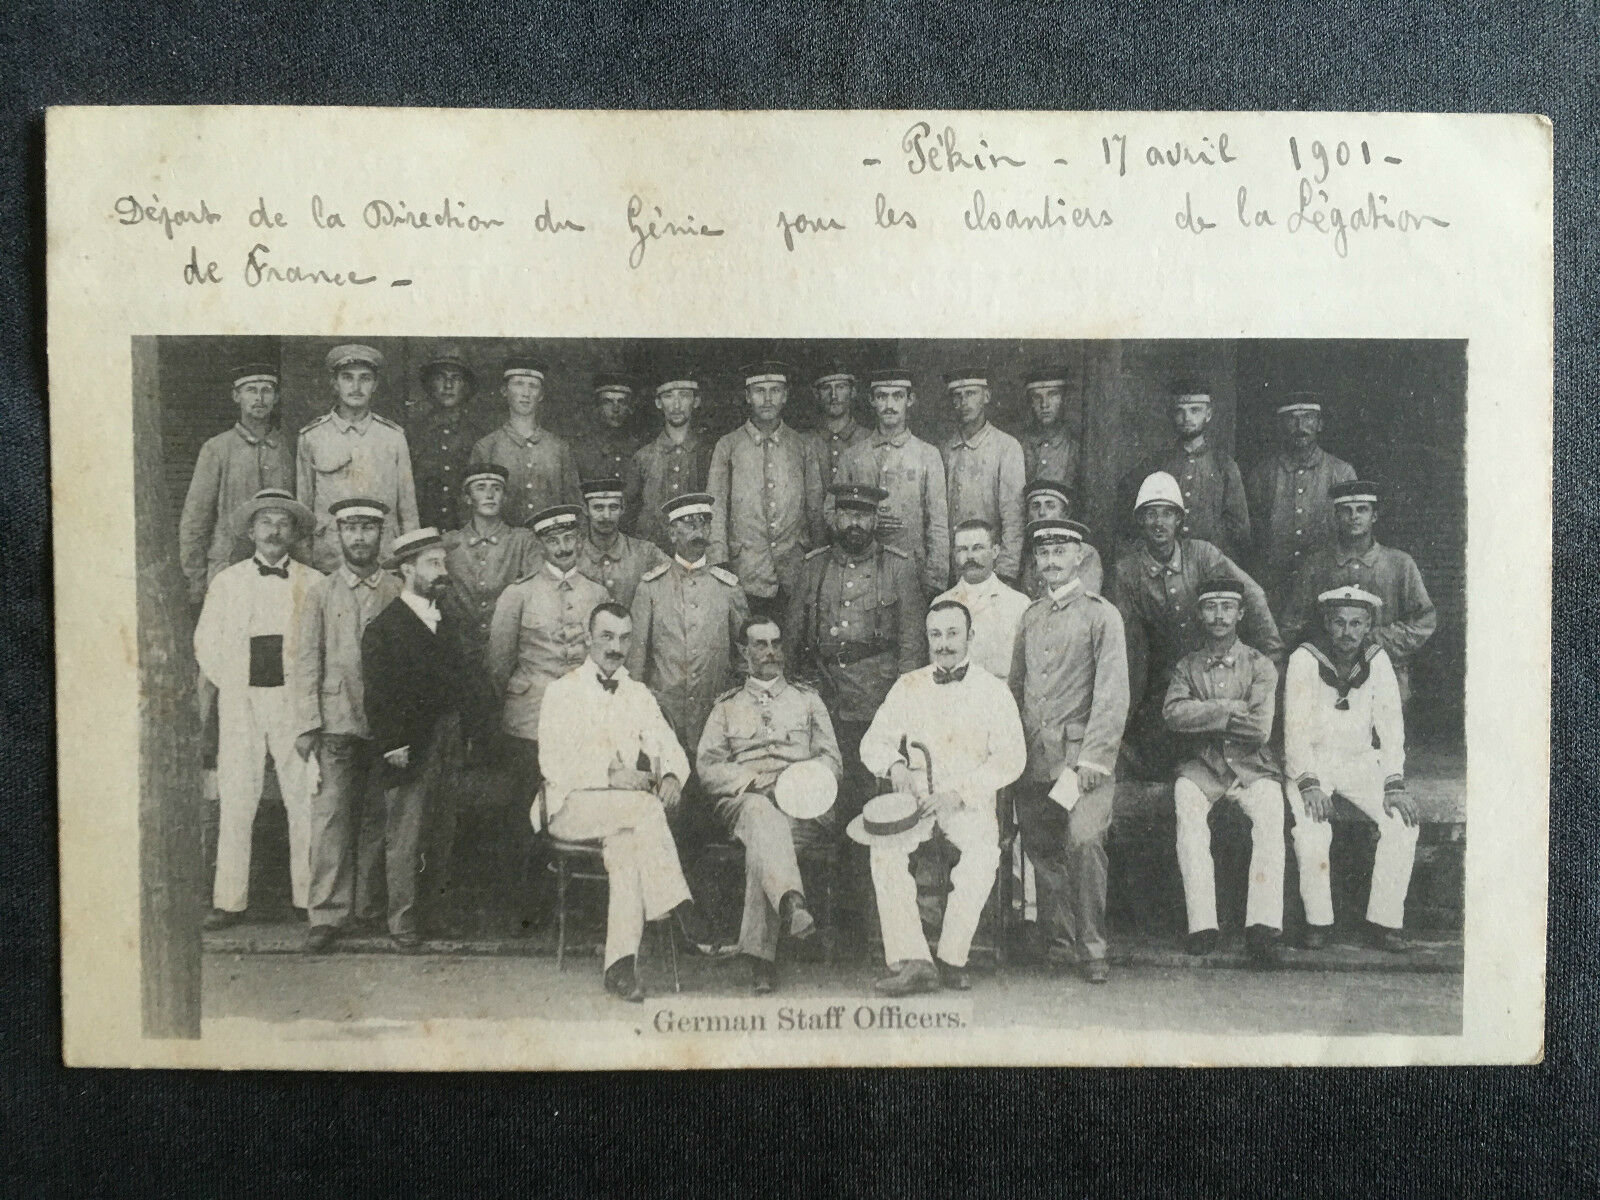 - Pékin - 17 avril 1901 -
Départ de la Direction du Génie pour les chantiers de la Légation
de France -
German Staff Officers.